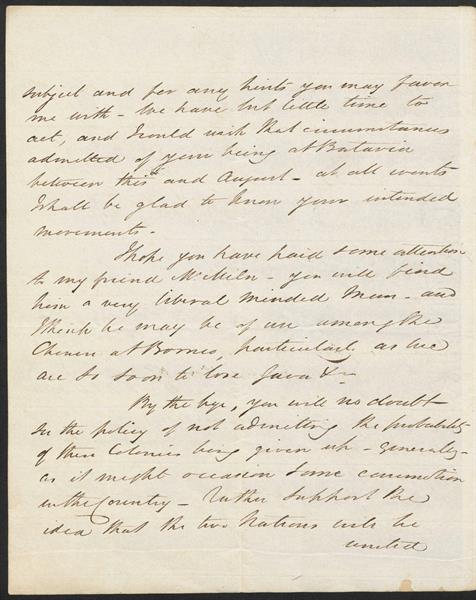 subject and for any hints you may favor
me with - We have but little time to
act, and I could wish that circumstances
admitted of your being at Batavia
between this and August - at all events
I shall be glad to know your intended
movements -
I hope you have paid some attention
to my friend Mr Miln - you will find
him a very liberal minded man - and
I think he may be of use among the
Chinese at Borneo, particularly as we
are so soon to lose Java &c
By the bye, you will no doubt
the policy of not admitting the probability
of these Colonies being given up - generally -
as it might occasion some commotion
in the Country - rather support the
idea that the two Nations will be
united